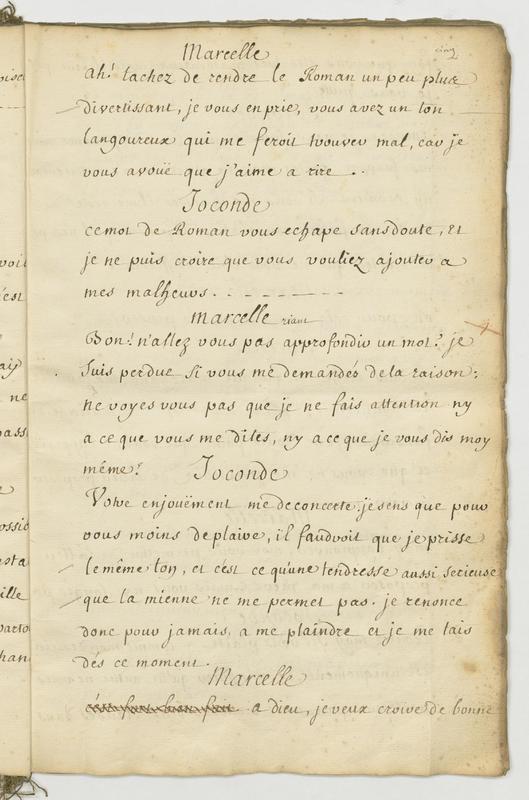 cinq
Marcelle
ah! tachez de rendre le Roman un peu plus
divertissant, je vous en prie, vous avez un ton
langoureux qui me feroit trouver mal, car je
vous avoüe que j'aime a rire ..
Joconde
ce mot de Roman vous echape sans doute, et
je ne puis croire que vous vouliez ajouter a
mes malheurs. . - - - - - -
marcelle riant
Bon! n'allez vous pas approfondir un mot? je
suis perdue si vous me demandés de la raison;
ne voyes vous pas que je ne fais attention ny
a ce que vous me dites, ny a ce que je vous dis moy
même?
Joconde
Votre enjouëment me deconcerte. je sens que pour
vous moins deplaire, il faudroit que je prisse
le même ton, et c'est ce qu'une tendresse aussi serieuse
que la mienne ne me permet pas. je renonce
donc pour jamais, a me plaindre et je me tais
dès ce moment.
Marcelle
a dieu, je veux croire de bonne